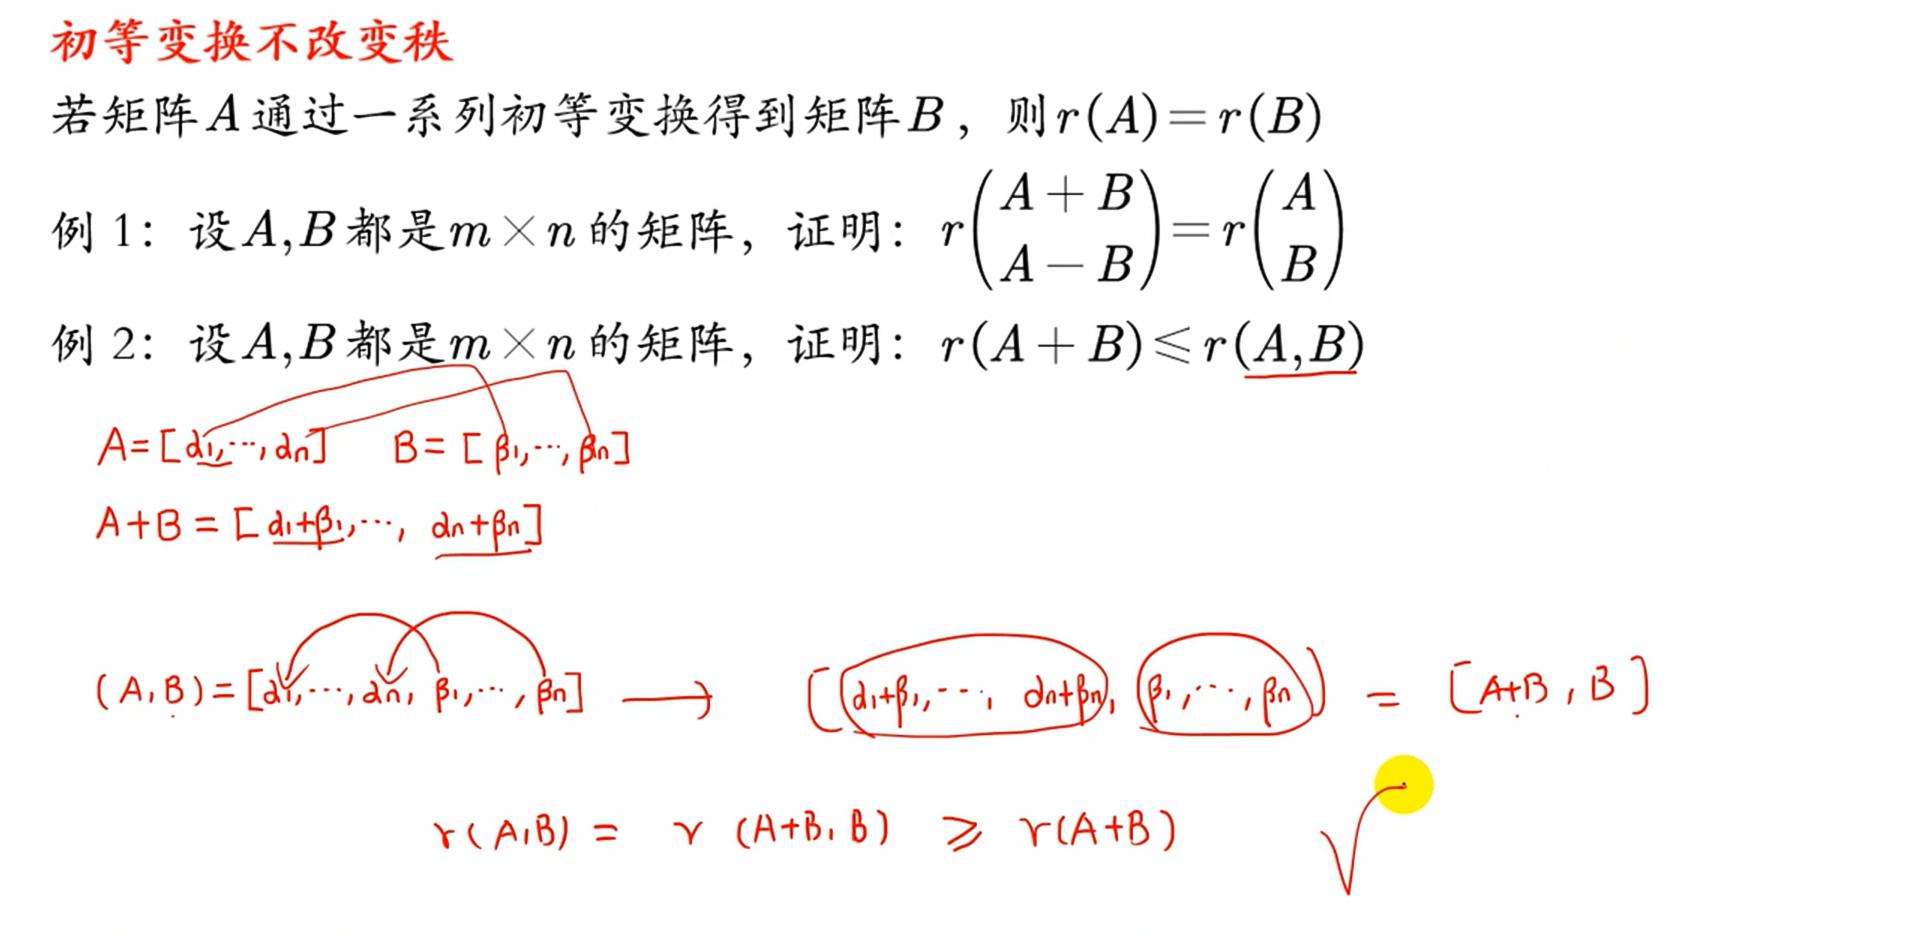 初等变换不改变秩
若矩阵A通过一系列初等变换得到矩阵B，则r(A)=r(B)
例 1：设A,B都是m×n的矩阵，证明：r(A+B A−B)=r(A B)
例 2：设A,B都是m×n的矩阵，证明：r(A+B)⩽r(A,B)
A=[α1,⋯,αn] B=[β1,⋯,βn]
A+B=[α1+β1,⋯, αn+βn]
(A,B)=[α1,⋯,αn, β1,⋯,βn] → [α1+β1,⋯, αn+βn, β1,⋯,βn] = [A+B,B]
r(A,B) = r(A+B,B) ⩾ r(A+B) √